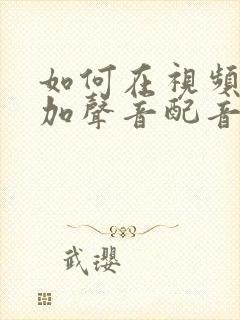 如何在視頻
加聲音配音
武瓔